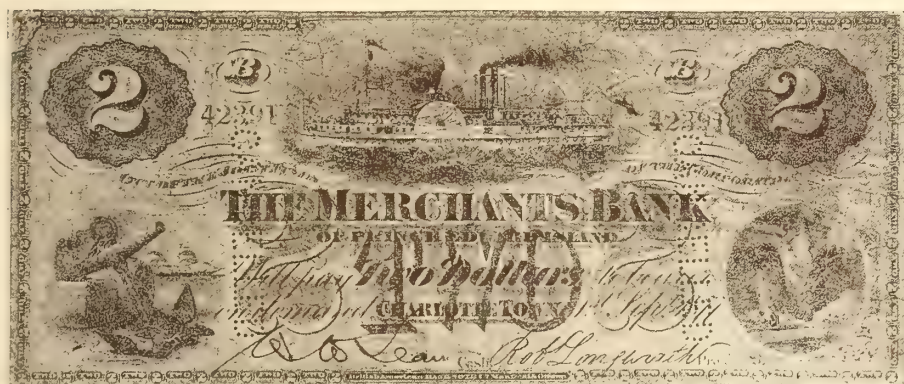 2 B B 2
42391 42391
THE MERCHANTS BANK
OF PRINCE EDWARD ISLAND
Will pay Two Dollars to bearer
on demand CHARLOTTETOWN 1st Sept. 1871
TWO
Robt Longworth